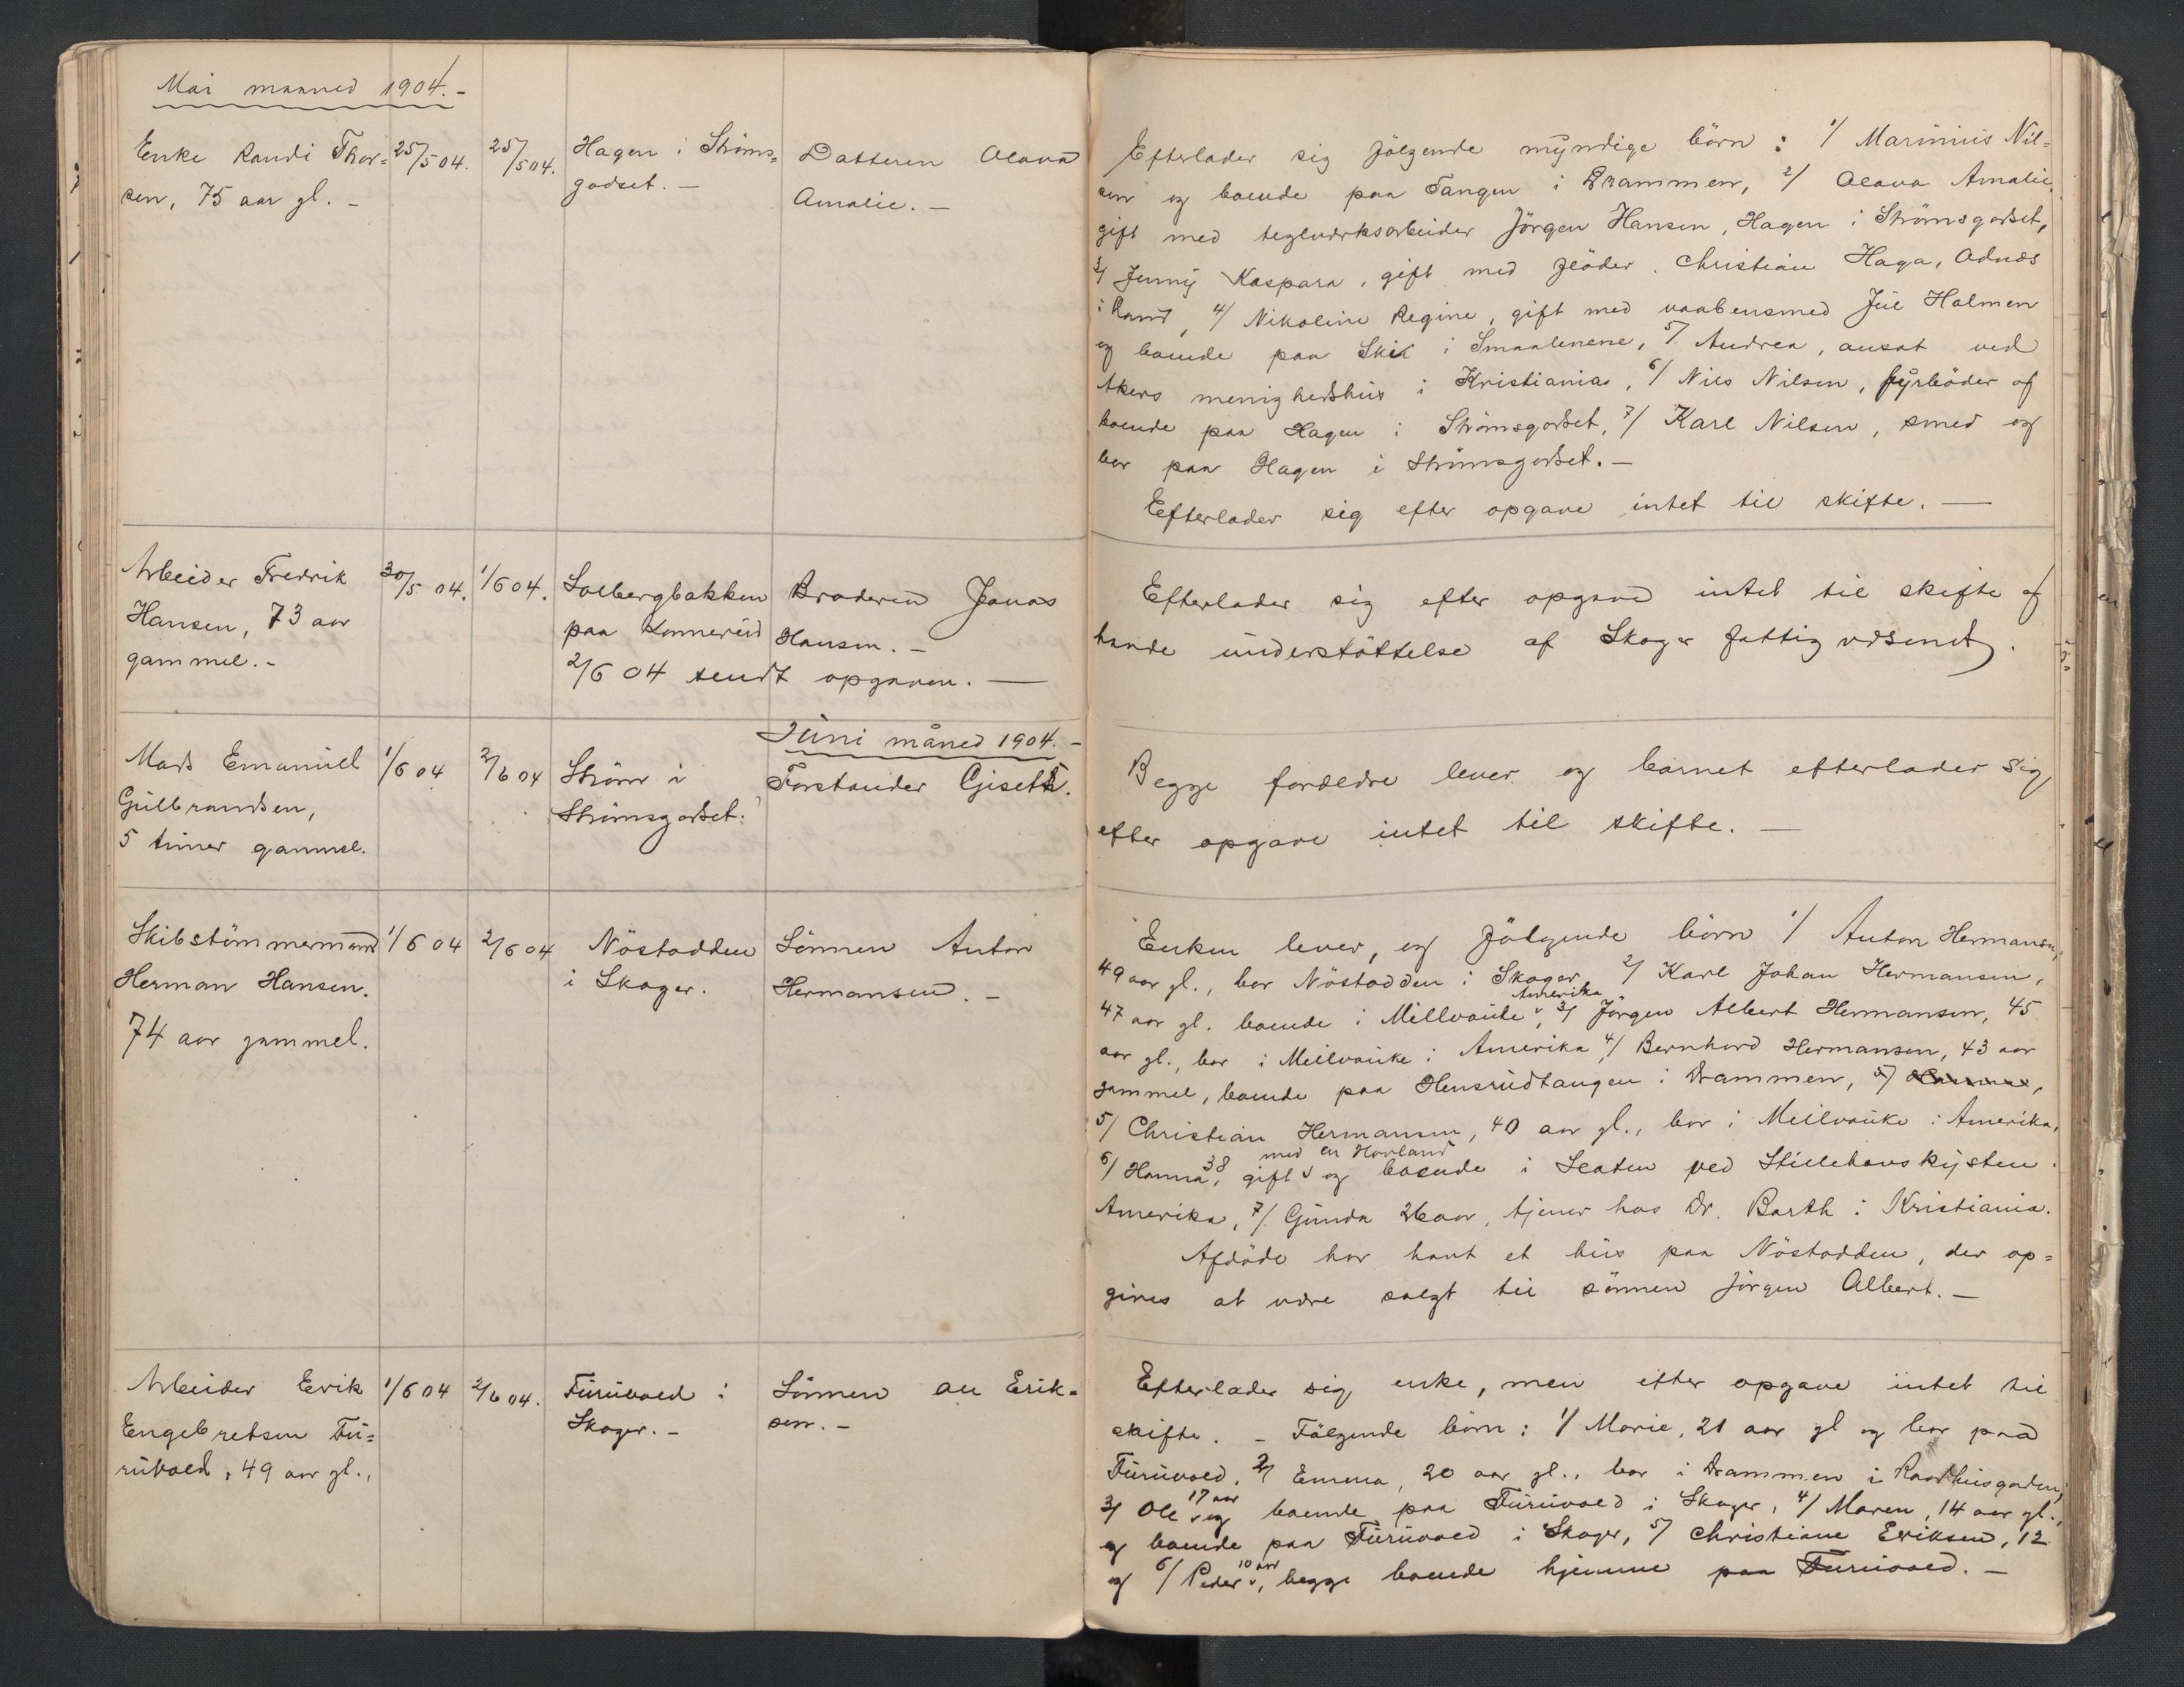 Mai maaned 1904.-
Enke Randi Thor=
sen, 75 aar gl. -
25/5 04.
25/5 04.
Hagen i Ströms=
godset. -
Datteren Olava
Amalie. -
Efterlader sig fölgende myndige börn: 1/ Marinius Nil=
sen og boende paa Tangen i Drammen, 2/ Olava Amalie,
gift med teglværksarbeider Jörgen Hansen, Hagen i Strömsgodset,
3/ Jenny Kaspara, gift med Christian Haga, Odnæs
i Land, 4/ Nikoline Regine, gift med vaabensmed Jul Holmen
og boende paa Ski i Smaalenene, 5/ Andrea, ansat ved
Akers menighedshus i Kristiania, 6/ Nils Nilsen, fyrböder og
boende paa Hagen i Strömsgodset, 7/ Karl Nilsen, smed og
bor paa Hagen i Strömsgodset. -
Efterlader sig efter opgave intet til skifte. -
Arbeider Fredrik
Hansen, 73 aar
gammel. -
30/5 04.
1/6 04.
Solbergbakken
paa Konnerud
Broderen Jonas
Hansen. -
2/6 04 sendt opgaven. -
Efterlader sig efter opgave intet til skifte og
havde understöttelse af Skoger fattigvæsenet.
Juni måned 1904. -
Mads Emanuel
Gulbrandsen,
5 timer gammel.
1/6 04
2/6 04
Ström i
Strömsgodset.
Forstander Gjiseth.
Begge forældre lever og barnet efterlader sig
efter opgave intet til skifte. -
Skibstömmermand
Herman Hansen.
74 aar gammel.
1/6 04
2/6 04
Nöstodden
i Skoger.
Sönnen Anton
Hermansen. -
Enken lever, og fölgende börn 1/ Anton Hermansen,
49 aar gl., bor Nöstodden i Skoger, 2/ Karl Johan Hermansen,
Amerika
47 aar gl. boende i Millvauke, 3/ Jörgen Albert Hermansen, 45
aar gl., bor i Meilvauke i Amerika, 4/ Bernhard Hermansen, 43 aar
gammel, boende paa Hensrudtangen i Drammen, 5/ Hanna,
5/ Christian Hermansen, 40 aar gl., bor i Meilvauke i Amerika,
med en Hovland
6/ Hanna, 38, gift og boende i Seaten ved Stillehavskysten i
Amerika, 7/ Gunda 26 aar, tjener hos Dr. Barth i Kristiania.
Afdöde har havt et hus paa Nöstodden, der op=
gives at være solgt til sönnen Jörgen Albert. -
Arbeider Erik
Engebretsen Fu=
ruvold, 49 aar gl.,
1/6 04
2/6 04.
Furuvold i
Skoger. -
Sönnen Ole Erik=
sen. -
Efterlader sig enke, men efter opgave intet til
skifte. - Fölgende börn: 1/ Marie, 21 aar gl og bor paa
Furuvold, 2/ Emma, 20 aar gl., bor i Drammen i Raadhusgaden,
17 aar
3/ Ole og boende paa Furuvold i Skoger, 4/ Maren, 14 aar gl.,
og boende paa Furuvold i Skoger, 5/ Christiane Eriksen, 12
10 aar
og 6/ Peder, begge boende hjemme paa Furuvold. -